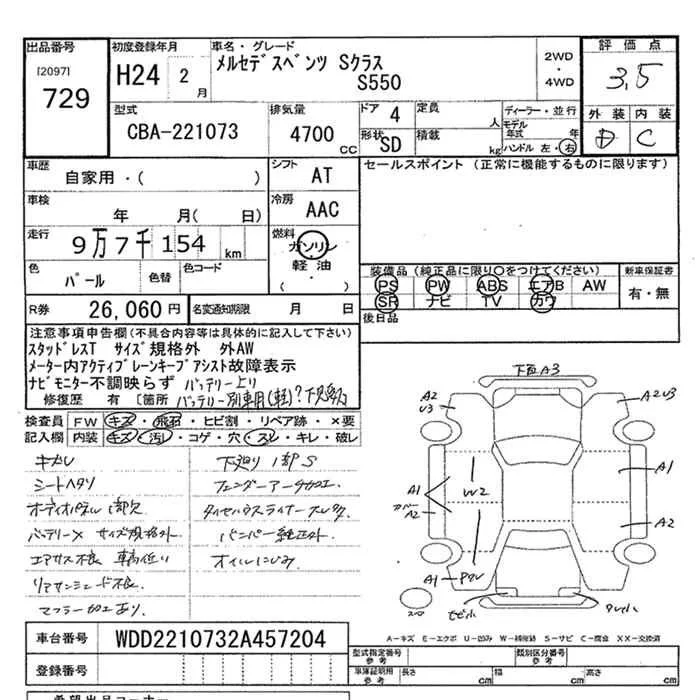 出品番号
[2097]
729
初度登録年月
H24 2月
車名・グレード
メルセデスベンツ Sクラス
S550
2WD
・
4WD
評価点
3.5
外装 内装
D C
型式
CBA-221073
排気量
4700 CC
ドア 4
形状 SD
定員 人
積載 kg
ディーラー・並行
モデル年式 年
ハンドル 左・右
車歴
自家用・( )
車検
年 月( 日)
走行
9万7千154 km
色 パール 色替
色コード
シフト AT
冷房 AAC
燃料
ガソリン
・
軽油
( )
セールスポイント (正常に機能するものに限ります)
装備品(純正品に限り○をつけてください)
PS PW ABS エアB AW
SR ナビ TV カワ
新車保証書
有・無
後日品
R券 26,060円
名変通知期限 月 日
注意事項申告欄(不具合内容等は具体的に記入して下さい)
スタッドレスT サイズ規格外 外AW
メーター内アクティブレーンキープアシスト故障表示
ナビモニター不調映らず バッテリー上り
修復歴 有 〔箇所 バッテリー別車用(軽)?
検査員記入欄
FW キズ・飛石・ヒビ割・リペア跡・×要
内装 キズ・汚レ・コゲ・穴・スレ・キレ・破レ
シートヘタリ
オーディオパネル1部欠
バッテリー× サイズ規格外
エアサス不良 車高低い
リアサンシェード不良
マフラー加工あり
下廻り1部S
フェンダーアーチ加工
タイヤハウスライナー
バンパー純正外
オイルにじみ
下有A3
A2
U3
A2U3
A1
カバー
A2
W2
A1
A2
A1
A-キズ E-エクボ U-凹み W-補修跡 S-サビ C-腐食 XX-交換済
車台番号 WDD2210732A457204
登録番号
型式指定番号
参考
類別区分番号
参考
車庫証明用
参考
長さ cm 幅 cm 高さ cm
希望出品コーナー